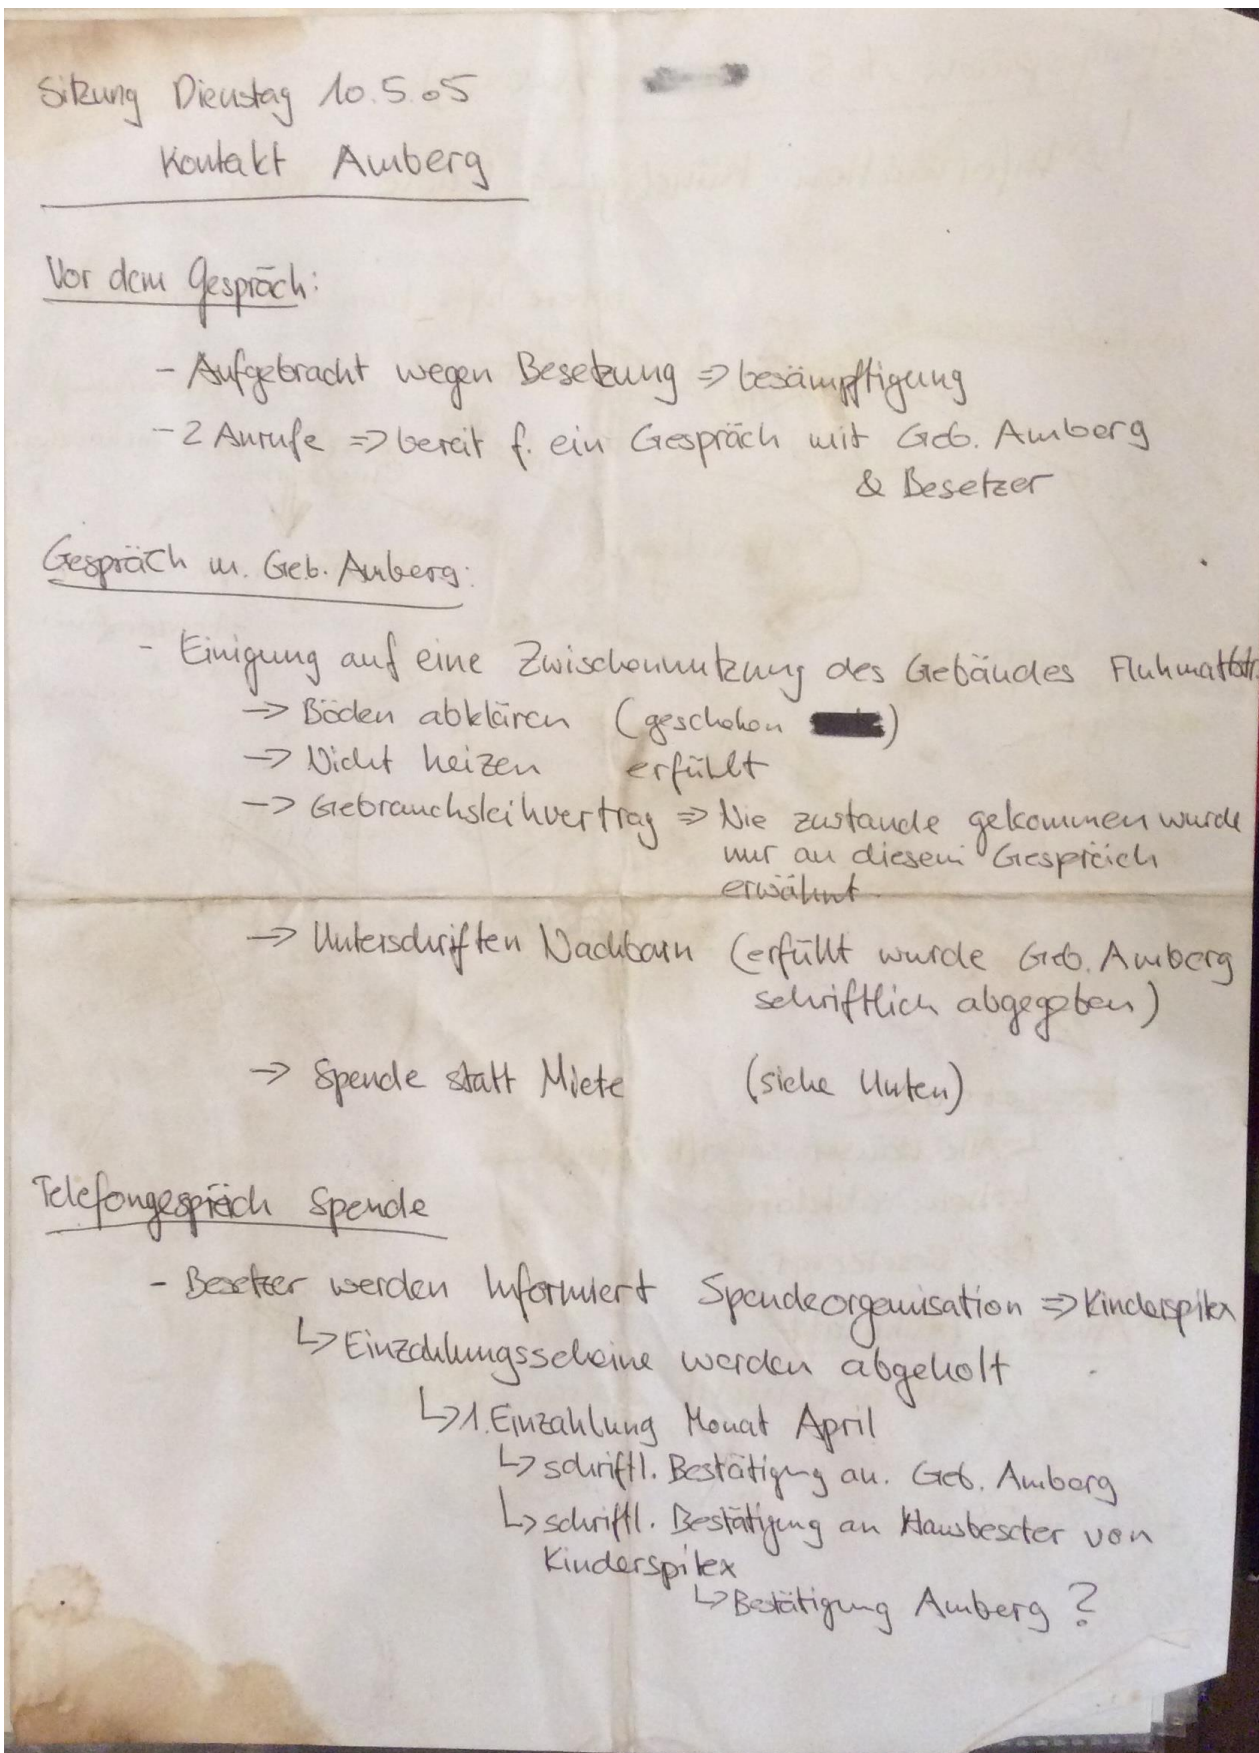 Sitzung Dienstag 10.5.05
Kontakt Amberg
Vor dem Gespräch:
- Aufgebracht wegen Besetzung => besämpftigung
- 2 Anrufe => bereit f. ein Gespräch mit Geb. Amberg
& Besetzer
Gespräch m. Geb. Amberg:
- Einigung auf eine Zwischennutzung des Gebäudes Fluhmattstr.
-> Böden abklären (geschehen )
-> Nicht heizen erfühlt
-> Gebrauchsleihvertrag => Nie zustande gekommen wurde
nur an diesem Gespräch
erwähnt.
-> Unterschriften Nachbarn (erfüllt wurde Geb. Amberg
schriftlich abgegeben)
-> Spende statt Miete (siehe Unten)
Telefongespräch Spende
- Besetzer werden Informiert Spendeorganisation => Kinderspitex
↳ Einzahlungsscheine werden abgeholt
↳ 1. Einzahlung Monat April
↳ schriftl. Bestätigung an. Geb. Amberg
↳ schriftl. Bestätigung an Hausbesetzer von
Kinderspitex
↳ Bestätigung Amberg ?